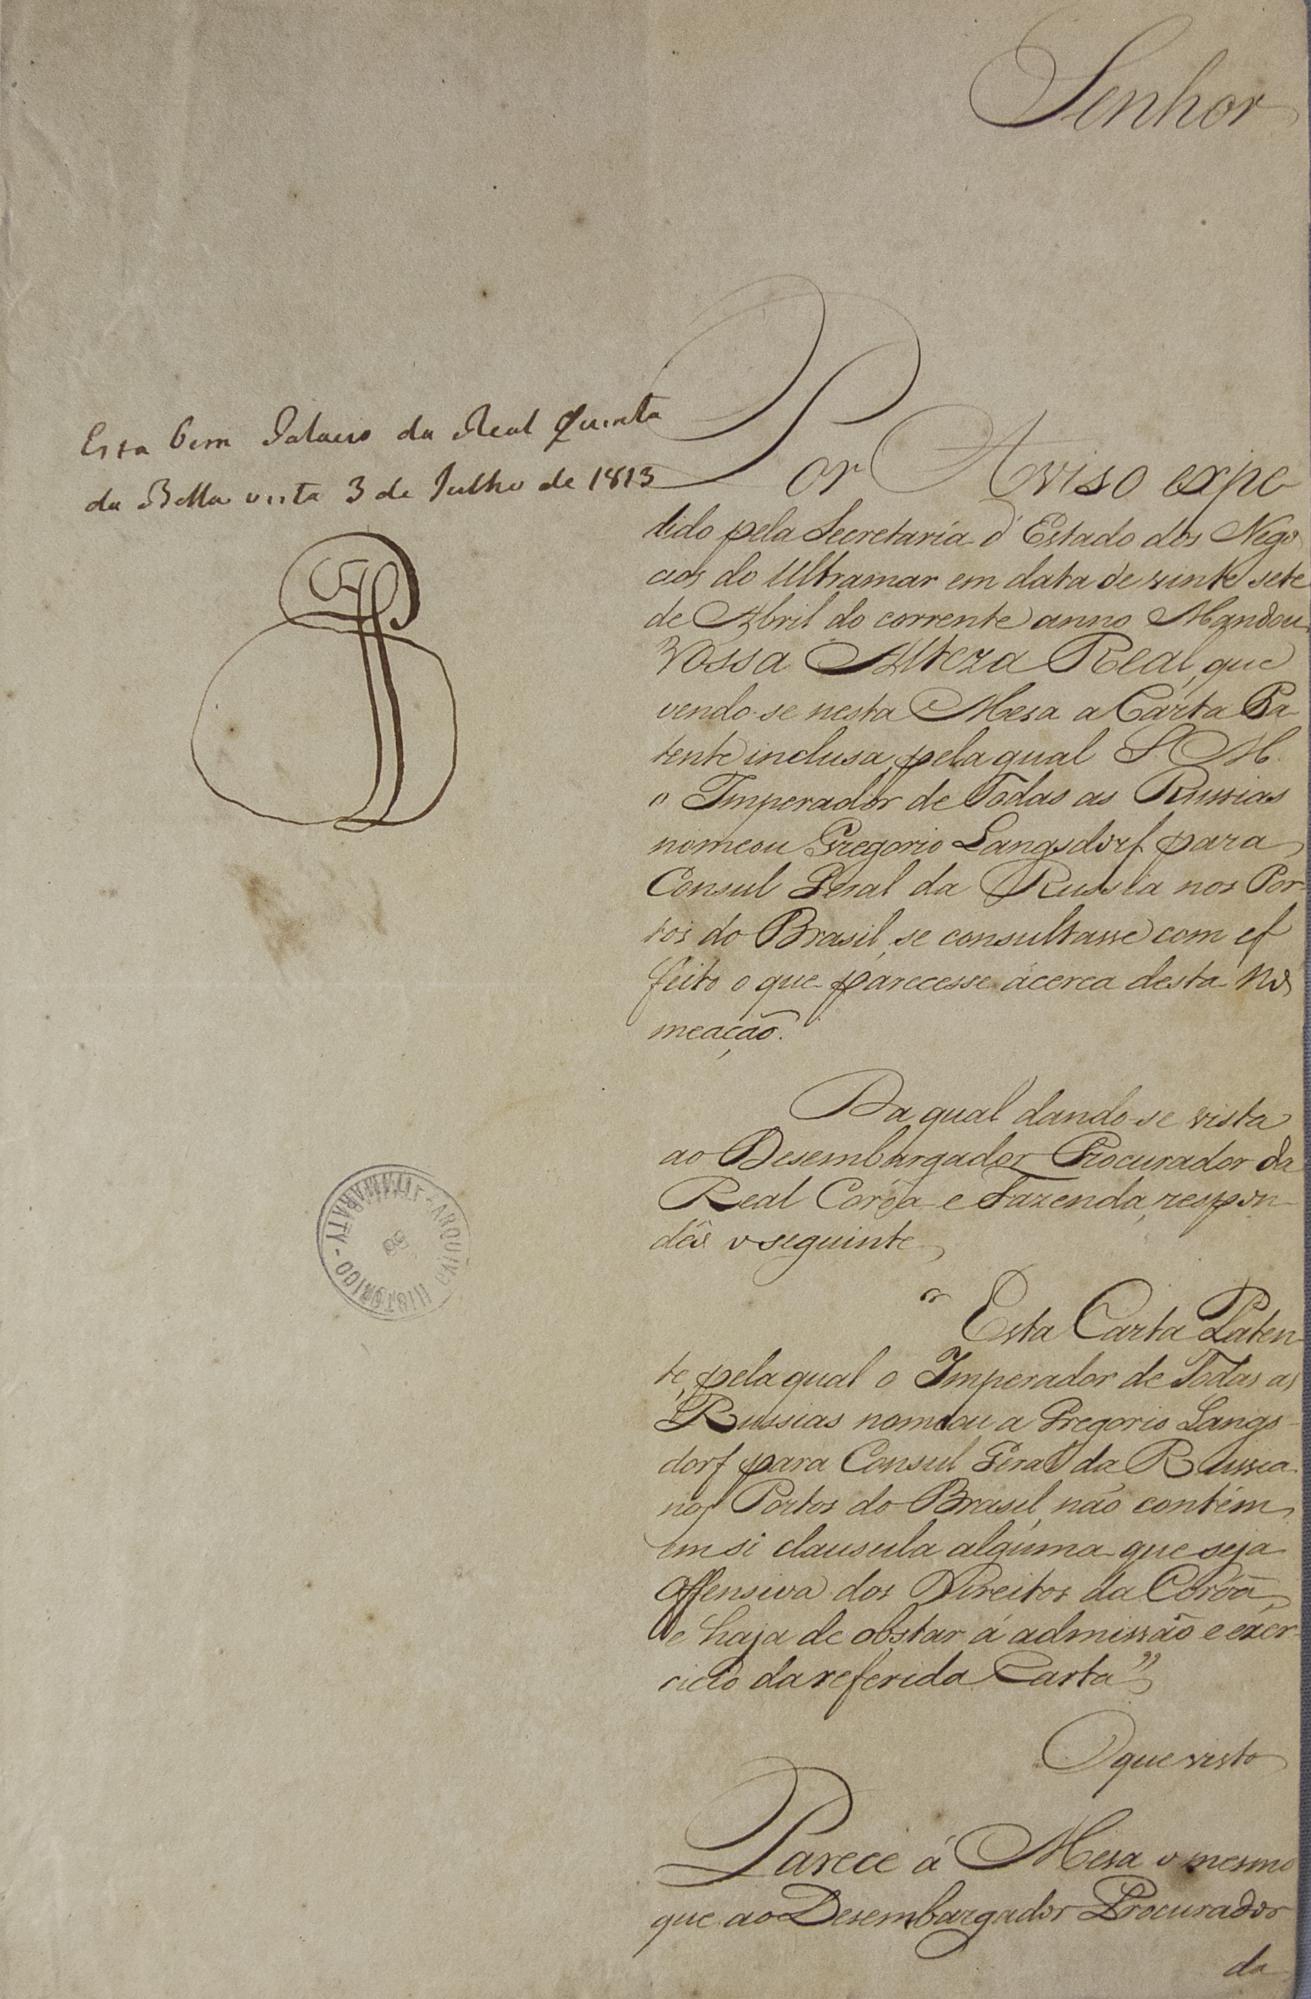 Senhor
Esta bem Palacio da Real Quinta
da Bella vista 3 de Julho de 1813
Por Aviso expe
dido pela Secretaria d'Estado dos Nego
cios do Ultramar em data de vinte sete
de Abril do corrente anno Mandou
Vossa Alteza Real, que
vendo-se nesta Mesa a Carta Pa
tente inclusa, pela qual S. M.
o Imperador de Todas as Russias
nomeou Gregorio Langsdorf para
Consul Geral da Russia nos Por
tos do Brasil, se consultasse com ef
feito o que parecesse ácerca desta No
meação.
Da qual dando-se vista
ao Desembargador Procurador da
Real Corôa e Fazenda, respon-
dêo o seguinte
"Esta Carta Paten
te, pela qual o Imperador de Todas as
Russias nomeou a Gregorio Langs-
dorf para Consul Geral da Russia
nos Portos do Brasil, não contém
em si clausula alguma que seja
offensiva dos Direitos da Corôa,
e haja de obstar á admissão e exer-
cicio da referida Carta"
O que visto
Parece á Mesa o mesmo
que ao Desembargador Procurador
da
ARQUIVO HISTORICO - ITAMARATY -